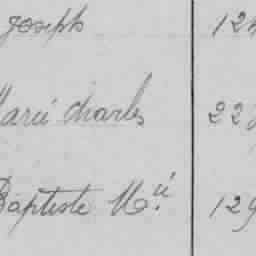 Joseph 12
Marie Charles 22
Baptiste M.ie 129